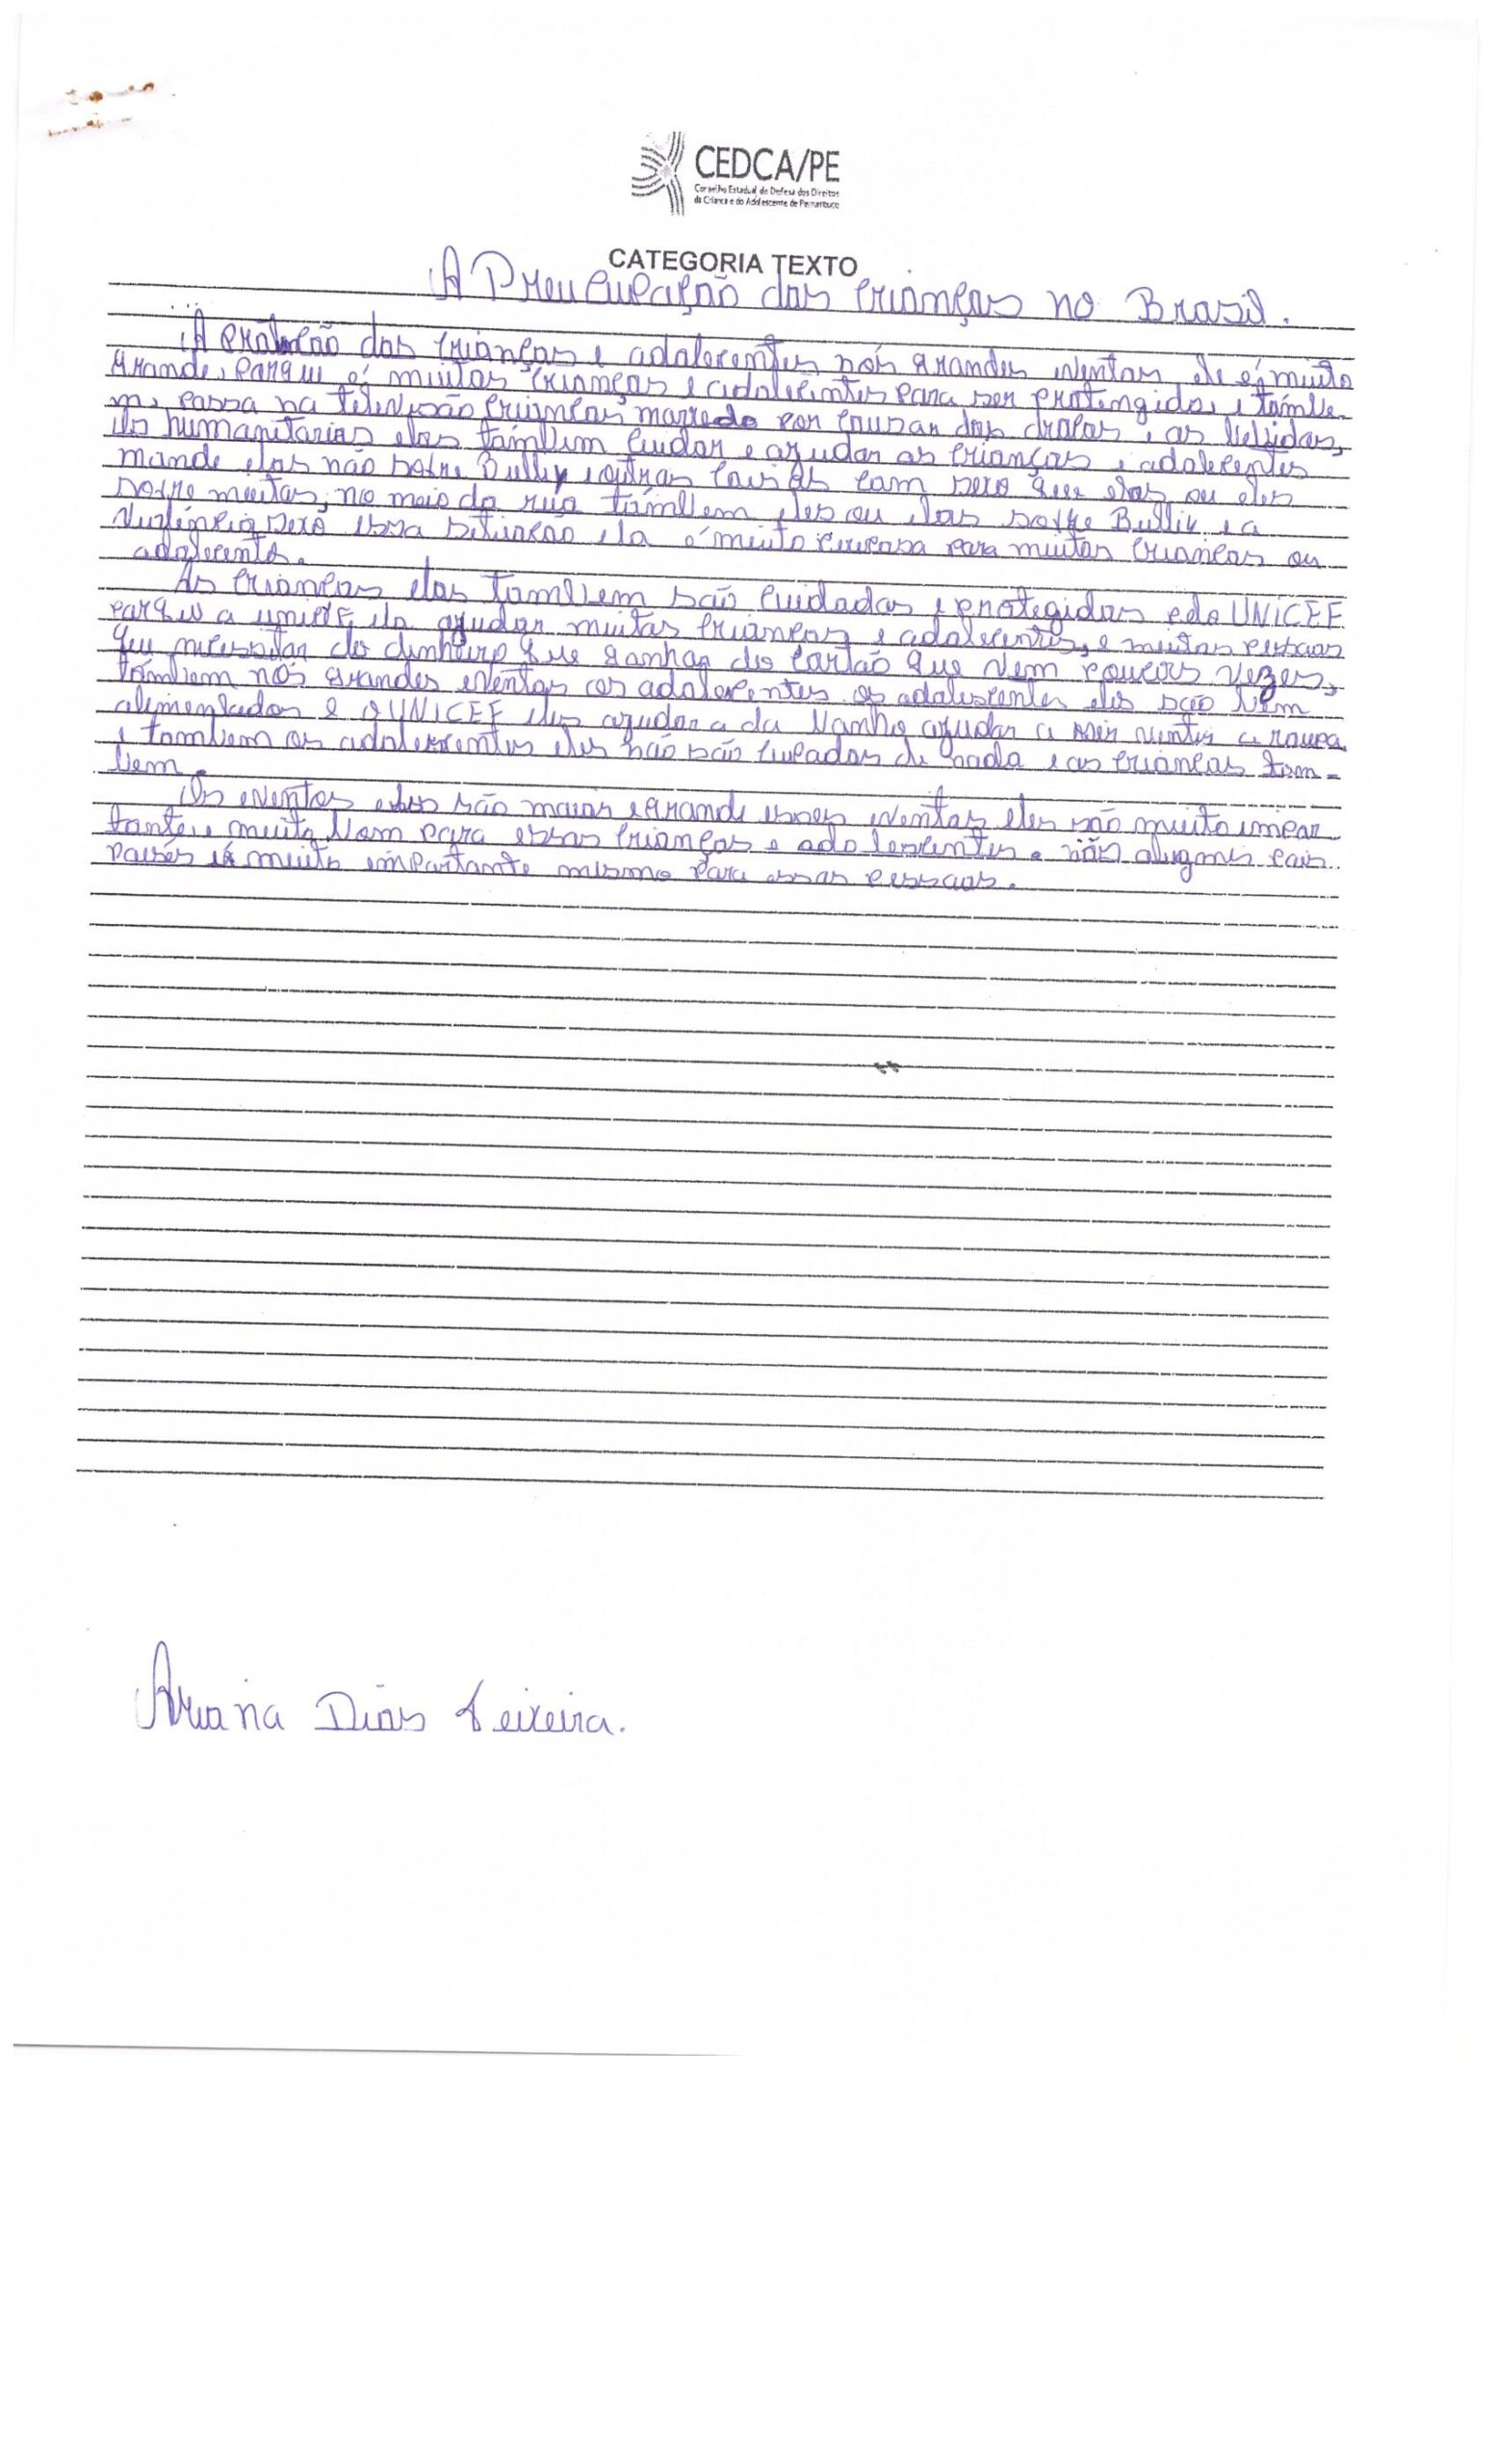 CEDCA/PE
Conselho Estadual de Defesa dos Direitos
da Criança e do Adolescente de Pernambuco
CATEGORIA TEXTO
A Preuculpação das crianças no Brasil.
A proteção das crianças e adolecentes nós grandes eventos ele é muito
grande, porque é muitas crianças e adolecentes para ser protengido, e támbe-
m, passa na televisão crianças morredo por cousar das drolas e as bebidas,
Os humanitarios elas támbem cudar e ajudar as crianças e adolecentes
mande elas não sofre Bully e outras coisas com sero que elas ou eles
sofre muitas, no meio da rua támbem eles ou elas sofre Bulliy e a
violência sexó essa situação ela é muito para muitas crianças ou
adolecente.
As crianças elas tambem são cuidadas e protegidas pela UNICEF
porque a unicef ela ajudar muitas crianças e adolecentes, e muitas pessoas
que necessitar do dinheiro que ganhar do cartão que vem poucos vezes,
támbem nós grandes eventos os adolecentes os adolescentes eles são bem
alimentados e o UNICEF eles ajudar a da banho ajudar a vestir a roupa
e tambem os adolescentes eles não são cupados de nada e as crianças tam-
bem.
Os eventos eles são maior e grande esses eventos eles são muito impor
tante e muito bom para essas crianças e adolescentes. não
países é muito importante mesmo para essas pessoas.
Ariana Dias Teixeira.